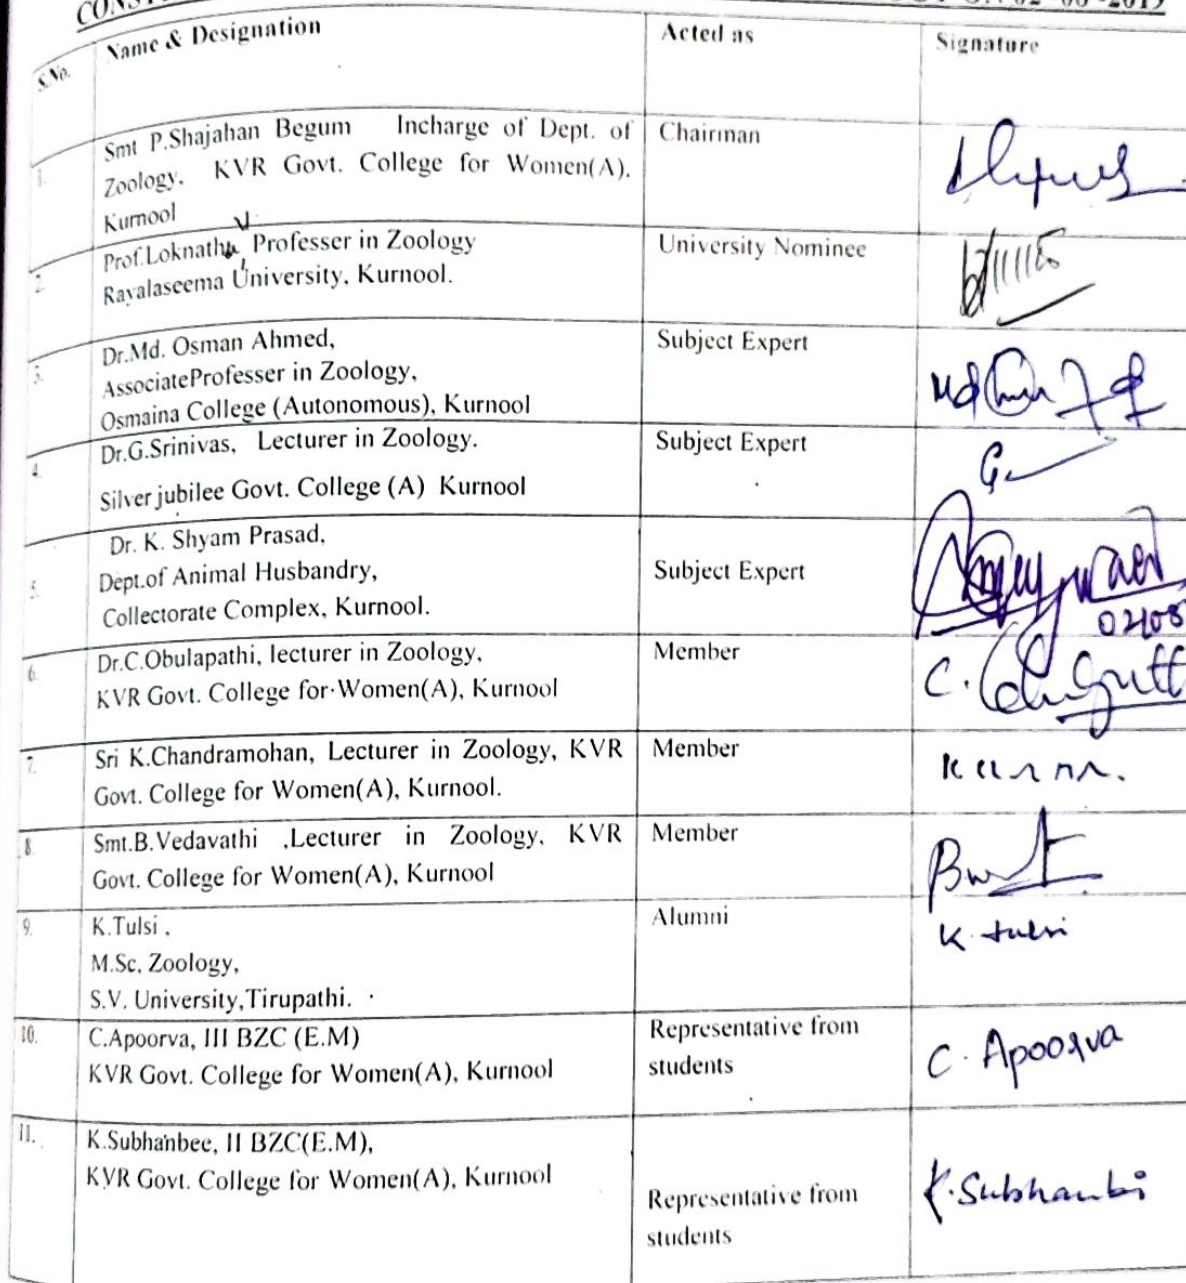 S.No.
Name & Designation
Acted as
Signature
1.
Smt P.Shajahan Begum Incharge of Dept. of
Zoology, KVR Govt. College for Women(A).
Kurnool
Chairman
2.
Prof.Loknatha, Professer in Zoology
Rayalaseema University, Kurnool.
University Nominee
3.
Dr.Md. Osman Ahmed,
AssociateProfesser in Zoology,
Osmaina College (Autonomous), Kurnool
Subject Expert
4.
Dr.G.Srinivas, Lecturer in Zoology.
Silver jubilee Govt. College (A) Kurnool
Subject Expert
5.
Dr. K. Shyam Prasad,
Dept.of Animal Husbandry,
Collectorate Complex, Kurnool.
Subject Expert
6.
Dr.C.Obulapathi, lecturer in Zoology,
KVR Govt. College for Women(A), Kurnool
Member
7.
Sri K.Chandramohan, Lecturer in Zoology, KVR
Govt. College for Women(A), Kurnool.
Member
8.
Smt.B.Vedavathi ,Lecturer in Zoology, KVR
Govt. College for Women(A), Kurnool
Member
9.
K.Tulsi ,
M.Sc, Zoology,
S.V. University,Tirupathi.
Alumni
K. tulsi
10.
C.Apoorva, III BZC (E.M)
KVR Govt. College for Women(A), Kurnool
Representative from
students
C. Apoorva
11.
K.Subhanbee, II BZC(E.M),
KVR Govt. College for Women(A), Kurnool
Representative from
students
K.Subhanbi